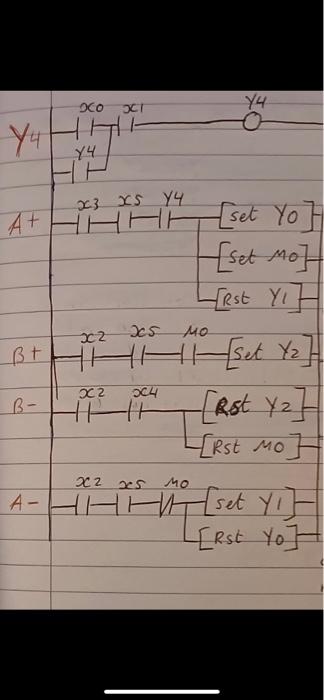 x0 x1 Y4
Y4
Y4
x3 x5 Y4
A+ [set Y0]
[set M0]
[Rst Y1]
x2 x5 M0
B+ [set Y2]
x2 x4
B- [Rst Y2]
[Rst M0]
x2 x5 M0
A- [set Y1]
[Rst Y0]